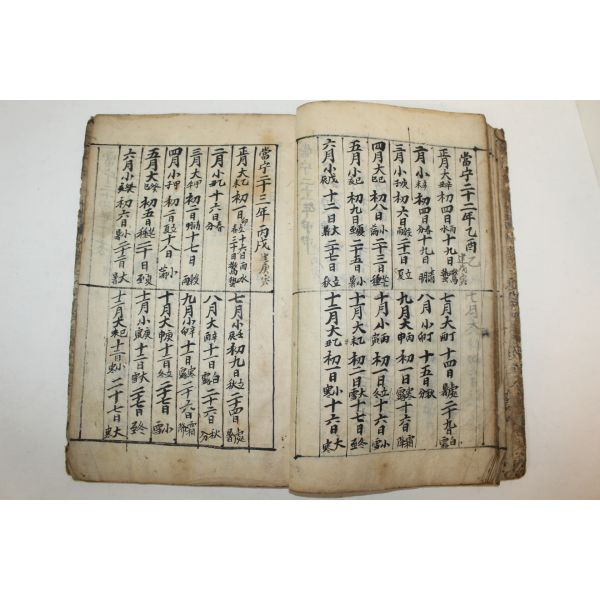 當宁二十二年乙酉
正月大辛初四日雨水十九日驚蟄
二月小辛初四日春分十九日淸明
三月小初六日穀雨二十一日立夏
四月大初八日小滿二十三日芒種
五月小初九日夏至二十五日小暑
六月小十二日大暑二十七日立秋
七月大丁十四日處暑二十九日白露
八月小丁十五日秋分
九月大丙初一日寒露十六日霜降
十月小丙初一日立冬十六日小雪
十一月大乙初一日大雪十六日冬至
十二月大乙初一日小寒十六日大寒
當宁二十三年丙戌建庚寅
正月大乙未初一日立春十六日雨水三十日驚蟄
二月小乙丑十六日春分
三月大甲午初二日淸明十七日穀雨
四月小甲子初二日立夏十八日小滿
五月大癸巳初五日芒種二十日夏至
六月小癸亥初六日小暑二十二日大暑
七月小壬辰初九日立秋二十四日處暑
八月大辛酉十一日白露二十六日秋分
九月小辛卯十一日寒露二十六日霜降
十月大庚申十二日立冬二十七日小雪
十一月小庚寅十二日大雪二十七日冬至
十二月大己未十二日小寒二十七日大寒